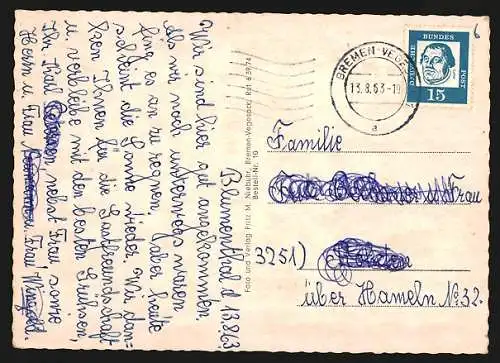 Blumenthal d. 13.8.63
Wir sind hier gut angekommen
als wir noch unterwegs waren
fing es an zu regnen, aber heute
scheint die Sonne wieder. Wir dan-
ken Ihnen für die Gastfreundschaft
u. verbleibe mit den besten Grüssen,
Ihr Karl nebst Frau, sowie
Herrn u. Frau
Foto und Verlag Fritz M. Niebuhr, Bremen-Vegesack, Ruf 6 39 74
Bestell-Nr. 10
BREMEN-VEGES
13.8.63-19
a
DEUTSCHE
BUNDES
POST
15
6
Familie
u Frau
3251)
über Hameln No. 32.